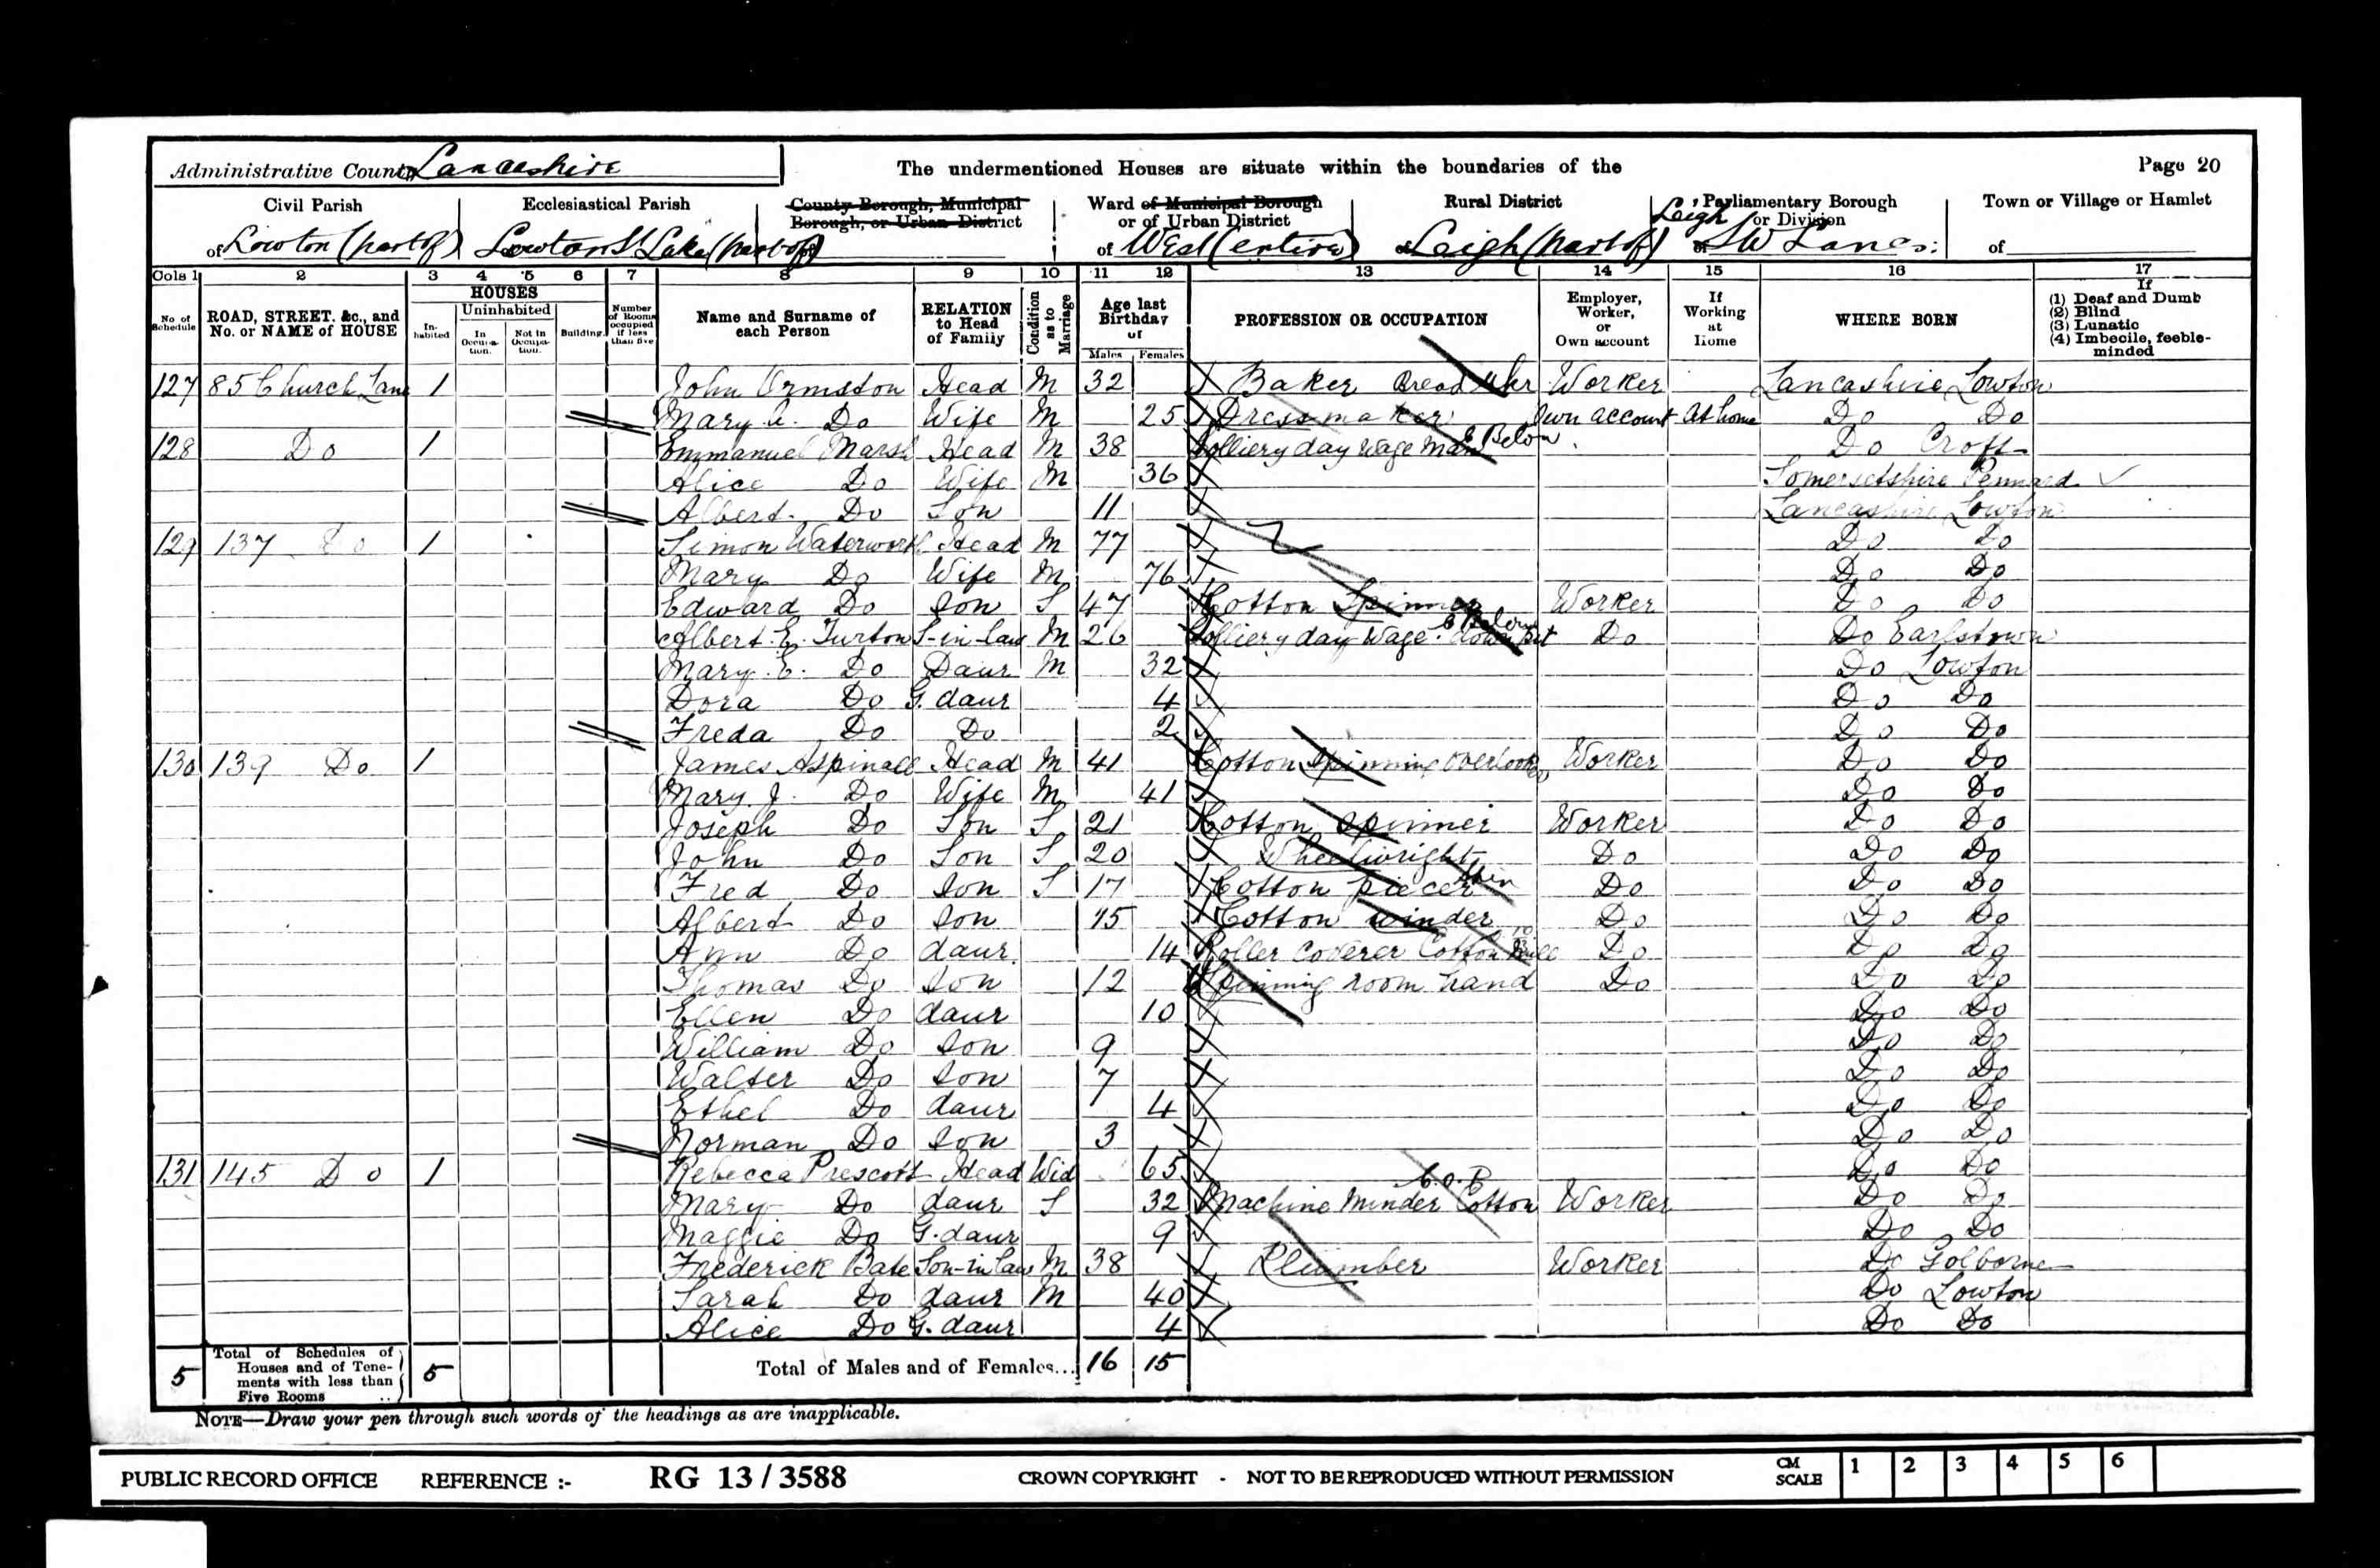 Administrative County Lancashire The undermentioned Houses are situate within the boundaries of the Page 20
Civil Parish Ecclesiastical Parish County Borough, Municipal Borough, or Urban District Ward of Municipal Borough or of Urban District Rural District Parliamentary Borough or Division Town or Village or Hamlet
of Lowton (part of) Lowton St Lukes (part of) of West (entire) of Leigh (part of) of Leigh S W Lancs: of
Cols 1 2 3 4 5 6 7 8 9 10 11 12 13 14 15 16 17
No. of Schedule ROAD, STREET. &c., and No. or NAME of HOUSE HOUSES In-habited Uninhabited In Occupa-tion. Not in Occupa-tion. Building. Number of Rooms occupied if less than five Name and Surname of each Person RELATION to Head of Family Condition as to Marriage Age last Birthday of Males Females PROFESSION OR OCCUPATION Employer, Worker, or Own account If Working at Home WHERE BORN If (1) Deaf and Dumb (2) Blind (3) Lunatic (4) Imbecile, feeble-minded
127 85 Church Lane 1 John Ormston Head M 32 Baker Bread Mkr Worker Lancashire Lowton
Mary A. Do Wife M 25 Dressmaker Own account At home Do Do
128 Do 1 Emmanuel Marsh Head M 38 Colliery day Wage Man Below Do Croft
Alice Do Wife M 36 Somersetshire Pennard
Albert. Do Son 11 Lancashire Lowton
129 137 Do 1 Simon Waterworth Head M 77 Do Do
Mary Do Wife M 76 Do Do
Edward Do Son S 47 Cotton Spinner Worker Do Do
Albert. E. Turton S-in-law M 26 Colliery day Wage. down Pit Below Do Do Earlstown
Mary. E. Do Daur M 32 Do Lowton
Dora Do G. daur 4 Do Do
Freda Do Do 2 Do Do
130 139 Do 1 James Aspinall Head M 41 Cotton Spinning Overlooker Worker Do Do
Mary. J. Do Wife M 41 Do Do
Joseph Do Son S 21 Cotton Spinner Worker Do Do
John Do Son S 20 Wheelwright Do Do Do
Fred Do Son S 17 Cotton Piecer Do Do Do
Albert Do Son 15 Cotton Winder Do Do Do
Ann Do daur 14 Roller Coverer Cotton Mill Do Do Do
Thomas Do Son 12 Spinning room hand Do Do Do
Ellen Do daur 10 Do Do
William Do Son 9 Do Do
Walter Do Son 7 Do Do
Ethel Do daur 4 Do Do
Norman Do Son 3 Do Do
131 145 Do 1 Rebecca Prescott Head Wid 65 Do Do
Mary Do daur S 32 Machine Minder Cotton Worker Do Do
Maggie Do G. daur 9 Do Do
Frederick Bate Son-in-law M 38 Plumber Worker Do Golborne
Sarah Do daur M 40 Do Lowton
Alice Do G. daur 4 Do Do
5 Total of Schedules of Houses and of Tene-ments with less than Five Rooms 5 Total of Males and of Females... 16 15
NOTE—Draw your pen through such words of the headings as are inapplicable.
PUBLIC RECORD OFFICE REFERENCE :- RG 13 / 3588 CROWN COPYRIGHT - NOT TO BE REPRODUCED WITHOUT PERMISSION CM SCALE 1 2 3 4 5 6